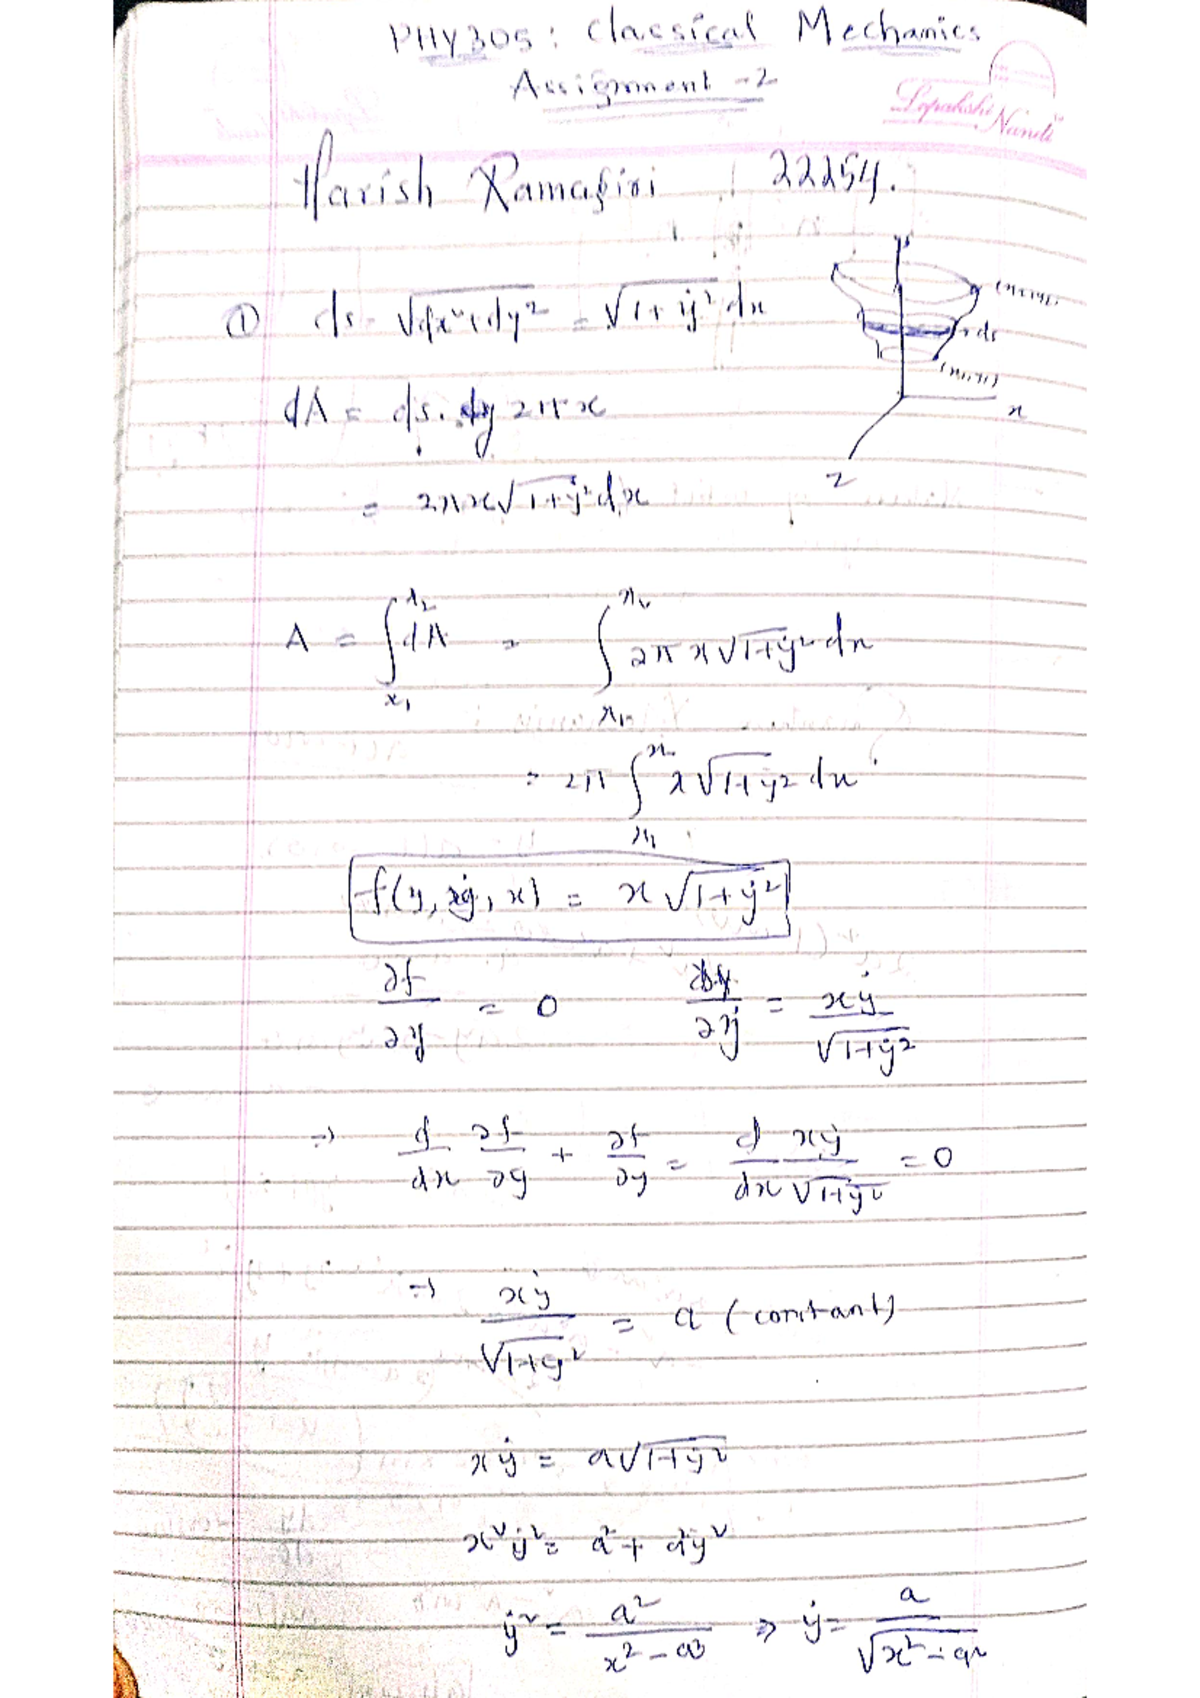 PHY305: Classical Mechanics
Assignment - 2
Lepakshi Nandi
Harish Ramagiri 22254.
① ds = √dx²+dy² = √1+ẏ² dx
ds
x
z
dA = ds. 2πx
= 2πx√1+ẏ² dx
A = ∫x₁^x₂ dA = ∫x₁^x₂ 2πx√1+ẏ² dx
= 2π ∫x₁^x₂ x√1+ẏ² dx
f(y, ẏ, x) = x√1+ẏ²
∂f/∂y = 0 ∂f/∂ẏ = xẏ/√1+ẏ²
⇒ d/dx ∂f/∂y + ∂f/∂y = d/dx xẏ/√1+ẏ² = 0
⇒ xẏ/√1+ẏ² = a (constant)
xẏ = a√1+ẏ²
x²ẏ² = a² + a²ẏ²
ẏ² = a²/x²-a² ⇒ ẏ = a/√x²-a²